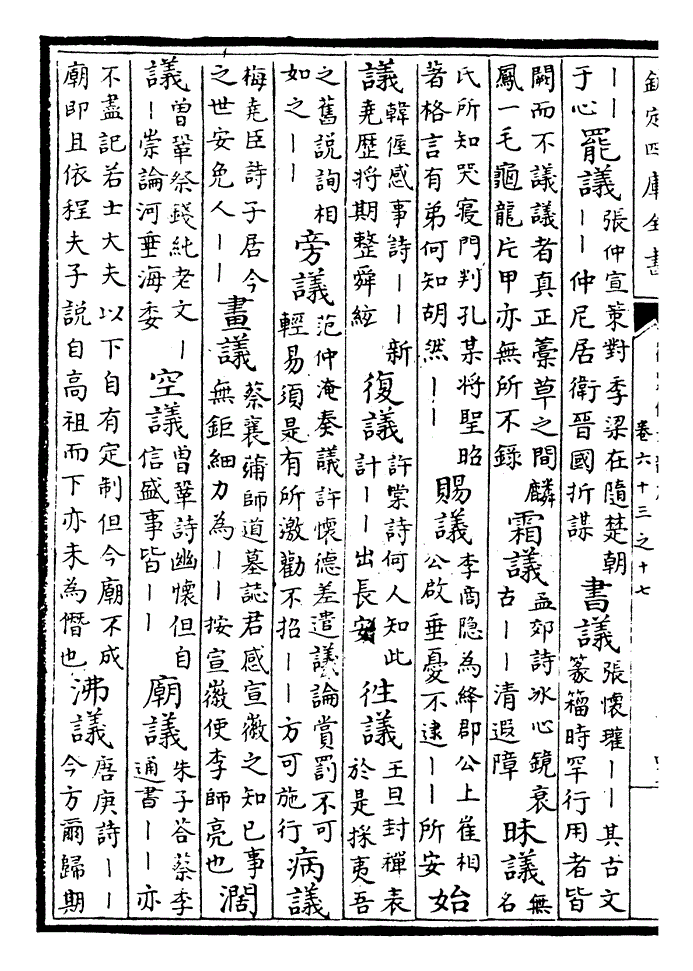 欽定四庫全書
卷六十三之十七
丨丨于心 罷議 張仲宣策對季梁在隨楚朝丨丨仲尼居衛晉國折謀 書議 張懷瓘丨丨其古文篆籀時罕行用者皆
闕而不議議者真正藁草之間麟鳳一毛龜龍片甲亦無所不錄 霜議 孟郊詩冰心鏡衰古丨丨清遐障 昧議 無名
氏所知哭寢門判孔某將聖昭著格言有弟何知胡然丨丨 賜議 李商隱為絳郡公上崔相公啟垂憂不逮丨丨所安 始
議 韓偓感事詩丨丨新堯歷將期整舜絃 復議 許棠詩何人知此計丨丨出長安 徃議 王旦封禪表於是採夷吾
之舊說詢相如之丨丨 旁議 范仲淹奏議許懷德差遣議論賞罰不可輕易須是有所激勸不招丨丨方可施行 病議
梅堯臣詩子居今之世安免人丨丨 畫議 蔡襄蒲師道墓誌君感宣徽之知已事無鉅細力為丨丨按宣徽使李師亮也 濶
議 曾鞏祭錢純老文丨丨崇論河垂海委 空議 曾鞏詩幽懷但自信盛事皆丨丨 廟議 朱子荅蔡季通書丨丨亦
不盡記若士大夫以下自有定制但今廟不成廟即且依程夫子說自高祖而下亦未為僭也 沸議 唐庚詩丨丨今方爾歸期